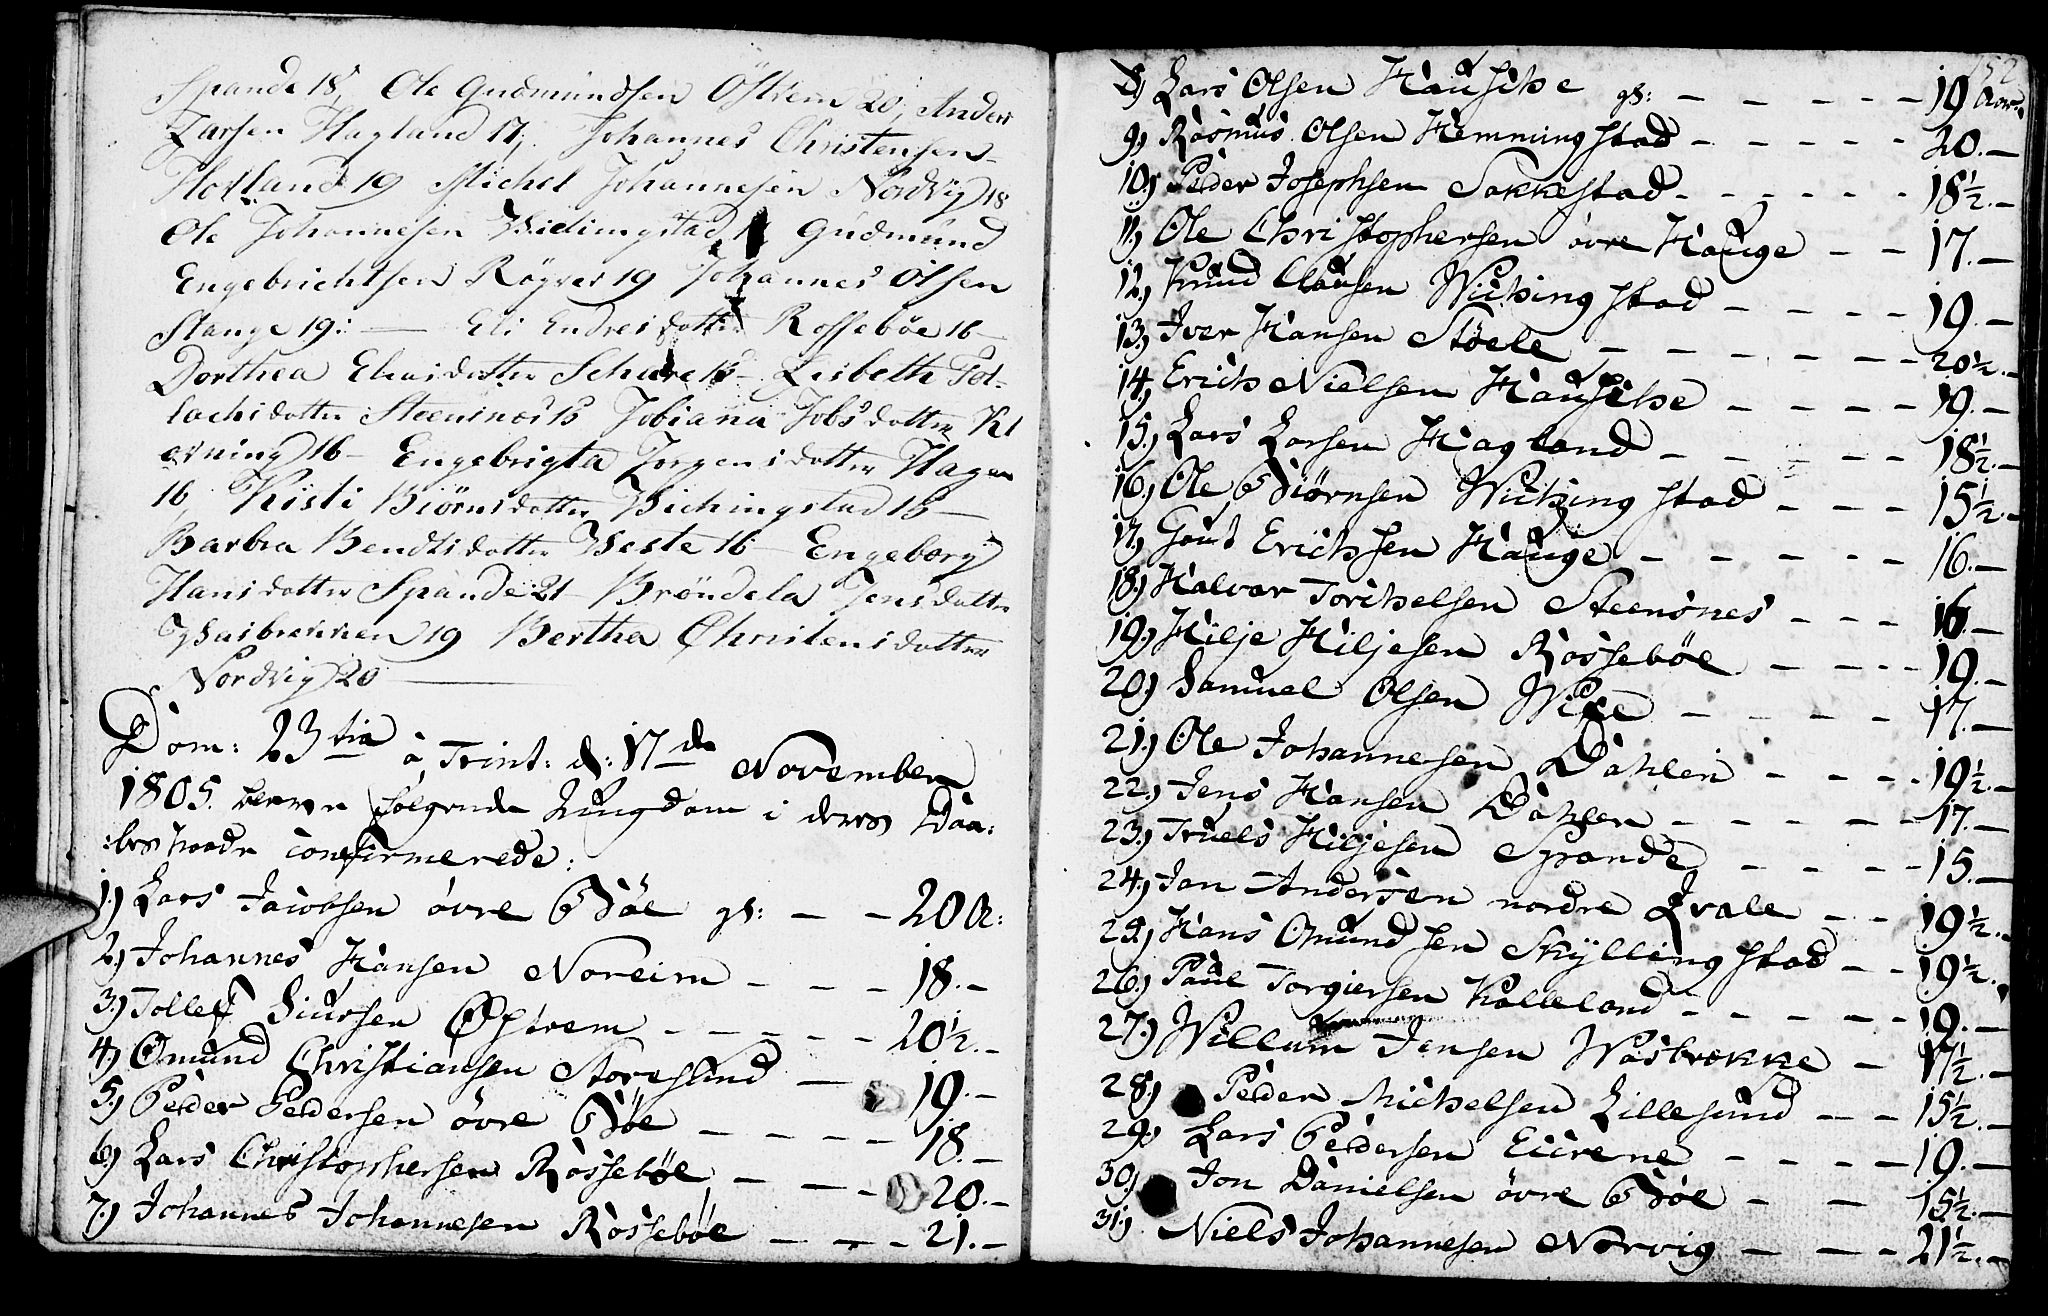 Spande 18, Ole Gudmundsen Östrem 20, Anders
Larsen Hagland 17, Johannes Christensen
Hofland 19 Michel Johannesen Nordvig 18
Ole Johannesen Widingstad Gudmund
Engebrichtsen Röyver 19 Johannes Olsen
Stange 19: — Eli Endresdotter Rossebøe 16 –
Dorthea Eliasdotter Schare – Lisbeth Tol-
lachsdotter Steensnes 18 Jobiana Jobsdotter Kl
erning 16 – Engebrigta Jörgensdotter Hagen
16, Kisti Biörnsdotter Wichingstad 18 –
Barbra Bendtsdotter Weste 16 – Engeborg
Hansdotter Spande 21 – Bröndela Jensdotter
Wasbrennen 19 Bertha Christensdotter
Nordvig 20 —
Dom: 23tia à Trint: d: 17de November
1805. bleve følgende Ungdom i deres Daa-
:bes Naade confirmerede:
1.) Lars Jacobsen övre Böe gl: – – 20 A:
2.) Johannes Hansen Noreim – – – 18. –
3.) Tollef Siursen Østrem – – – – – 20½. –
4.) Omund Christiansen Storesund – – 19. –
5.) Peder Pedersen övre Böe – – – – – 18. –
6.) Lars Christophersen Rossebøe – – – 20. –
7.) Johannes Johannesen Rossebøe – – – – 21. –
152
8.) Lars Olsen Hausche gl: – – – – – 19 Aar.
9.) Rasmus Olsen Hemmingstad – – – – – 20. –
10.) Peder Josephsen Sakkestad – – – – – – 18½. –
11.) Ole Christophersen övre Hauge – – 17. –
12.) Knud Clausen Wichingstad – – – – 19. –
13.) Iver Hansen Støele – – – – – – – 20½. –
14.) Erich Nielsen Hausche – – – – 19. –
15.) Lars Larsen Hagland – – – – – – 18½. –
16.) Ole Biørnsen Wichingstad – – – 15½. –
17.) Gaut Erichsen Hauge – – – – – 16. –
18.) Halvar Torchelsen Steensnes – – – 16. –
19.) Hilje Hiljesen Rossebøe – – – – 19. –
20.) Samuel Olsen – – – – – 17. –
21.) Ole Johannesen Dahlen – – – – 19½. –
22.) Jens Hansen Dahlen – – – – – – 17. –
23.) Truels Hiljesen Spande – – – – – 15. –
24.) Jan Andersen nordre Qvale – – 19½. –
25.) Hans Omundsen Skyllingstad – – 19½. –
26.) Paul Torgiersen Kalleland – – – – – 19. –
27.) Willum Jensen Wasbrekke – 17½. –
28.) Peder Michelsen Lillesund – – 15½. –
29.) Lars Pedersen Eicrene – – – – 19. –
30.) Jon Danielsen övre Böe – – – 15½. –
31.) Niels Johannesen Norvig – – – 21½. –